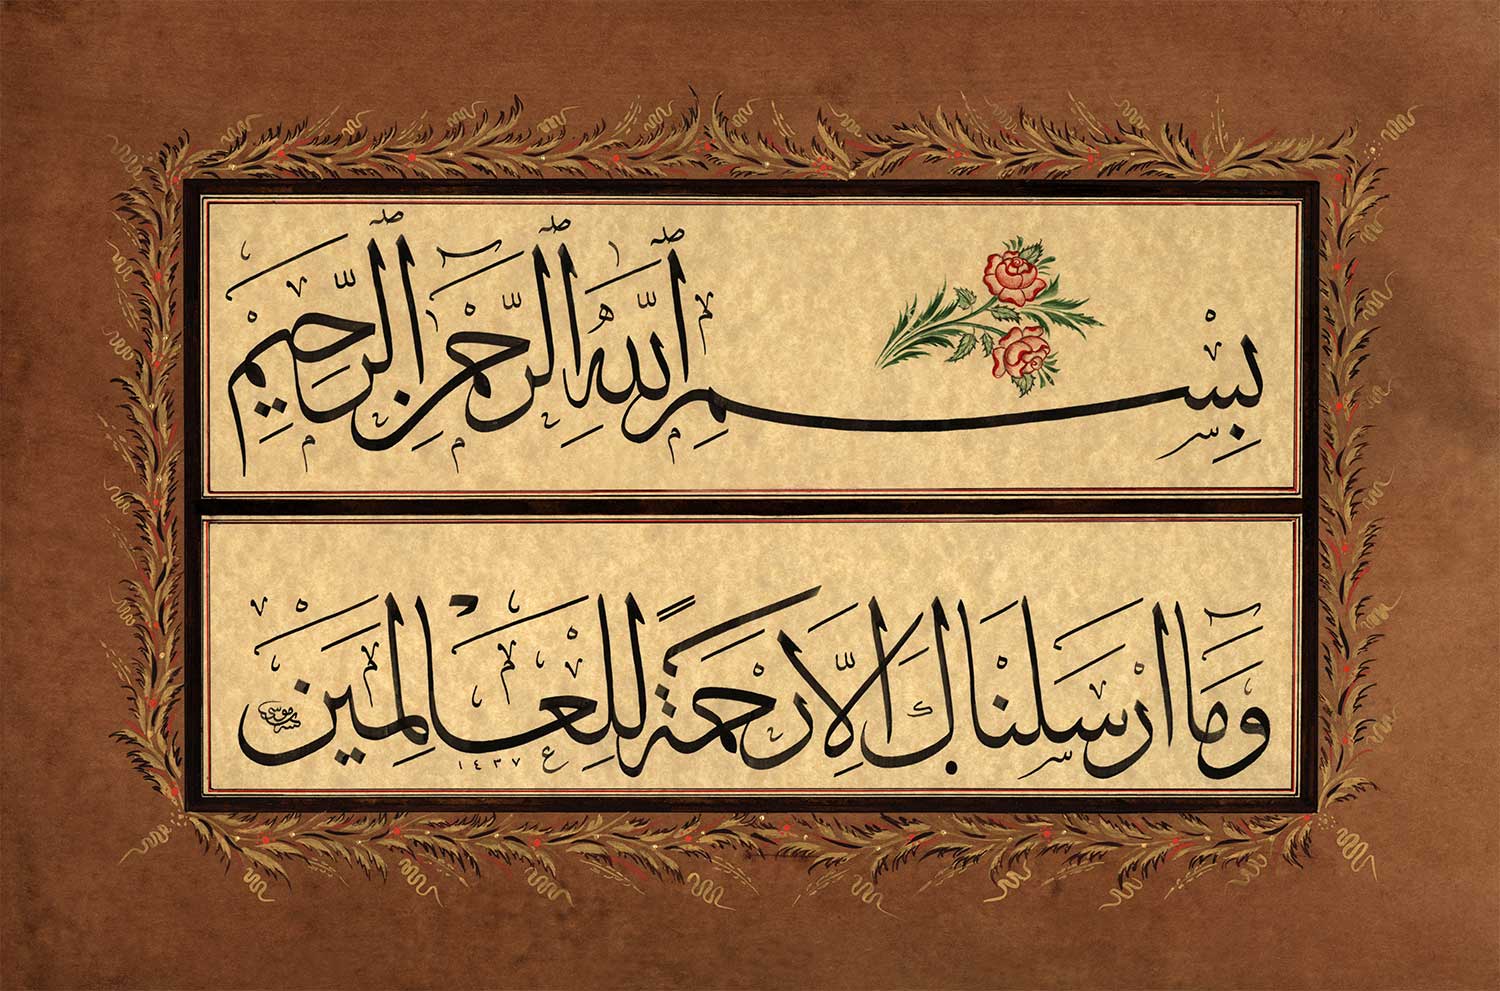 بِسْمِ اللّٰهِ الرَّحْمٰنِ الرَّحِيْمِ
وَمَآ اَرْسَلْنَاكَ اِلَّا رَحْمَةً لِلْعَالَمِيْنَ
١٤٣٧